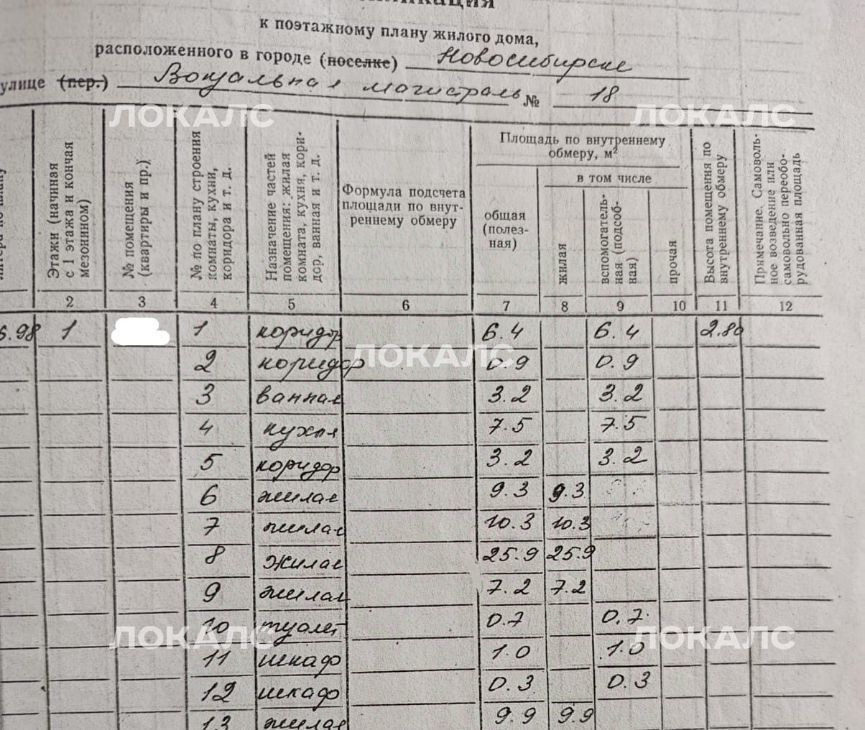 к поэтажному плану жилого дома,
расположенного в городе (поселке) Новосибирске
улице (пер.) Вокзальная магистраль № 18
ЛОКАЛС ЛОКАЛС
Этажи (начиная с 1 этажа и кончая мезонином)
№ помещения (квартиры и пр.)
№ по плану строения комнаты, кухни, коридора и т. д.
Назначение частей помещения: жилая комната, кухня, коридор, ванная и т. д.
Формула подсчета площади по внутреннему обмеру
Площадь по внутреннему обмеру, м²
общая (полезная)
в том числе
жилая
вспомогательная (подсобная)
прочая
Высота помещения по внутреннему обмеру
Примечание. Самовольное возведение или самовольно переоборудованная площадь
2 3 4 5 6 7 8 9 10 11 12
1 1 коридор 6.4 6.4 2.80
ЛОКАЛС
2 коридор 0.9 0.9
3 ванная 3.2 3.2
4 кухня 7.5 7.5
5 коридор 3.2 3.2
6 жилая 9.3 9.3
7 жилая 10.3 10.3
8 жилая 25.9 25.9
9 жилая 7.2 7.2
10 туалет 0.7 0.7
ЛОКАЛС ЛОКАЛС
11 шкаф 1.0 1.0
12 шкаф 0.3 0.3
13 жилая 9.9 9.9